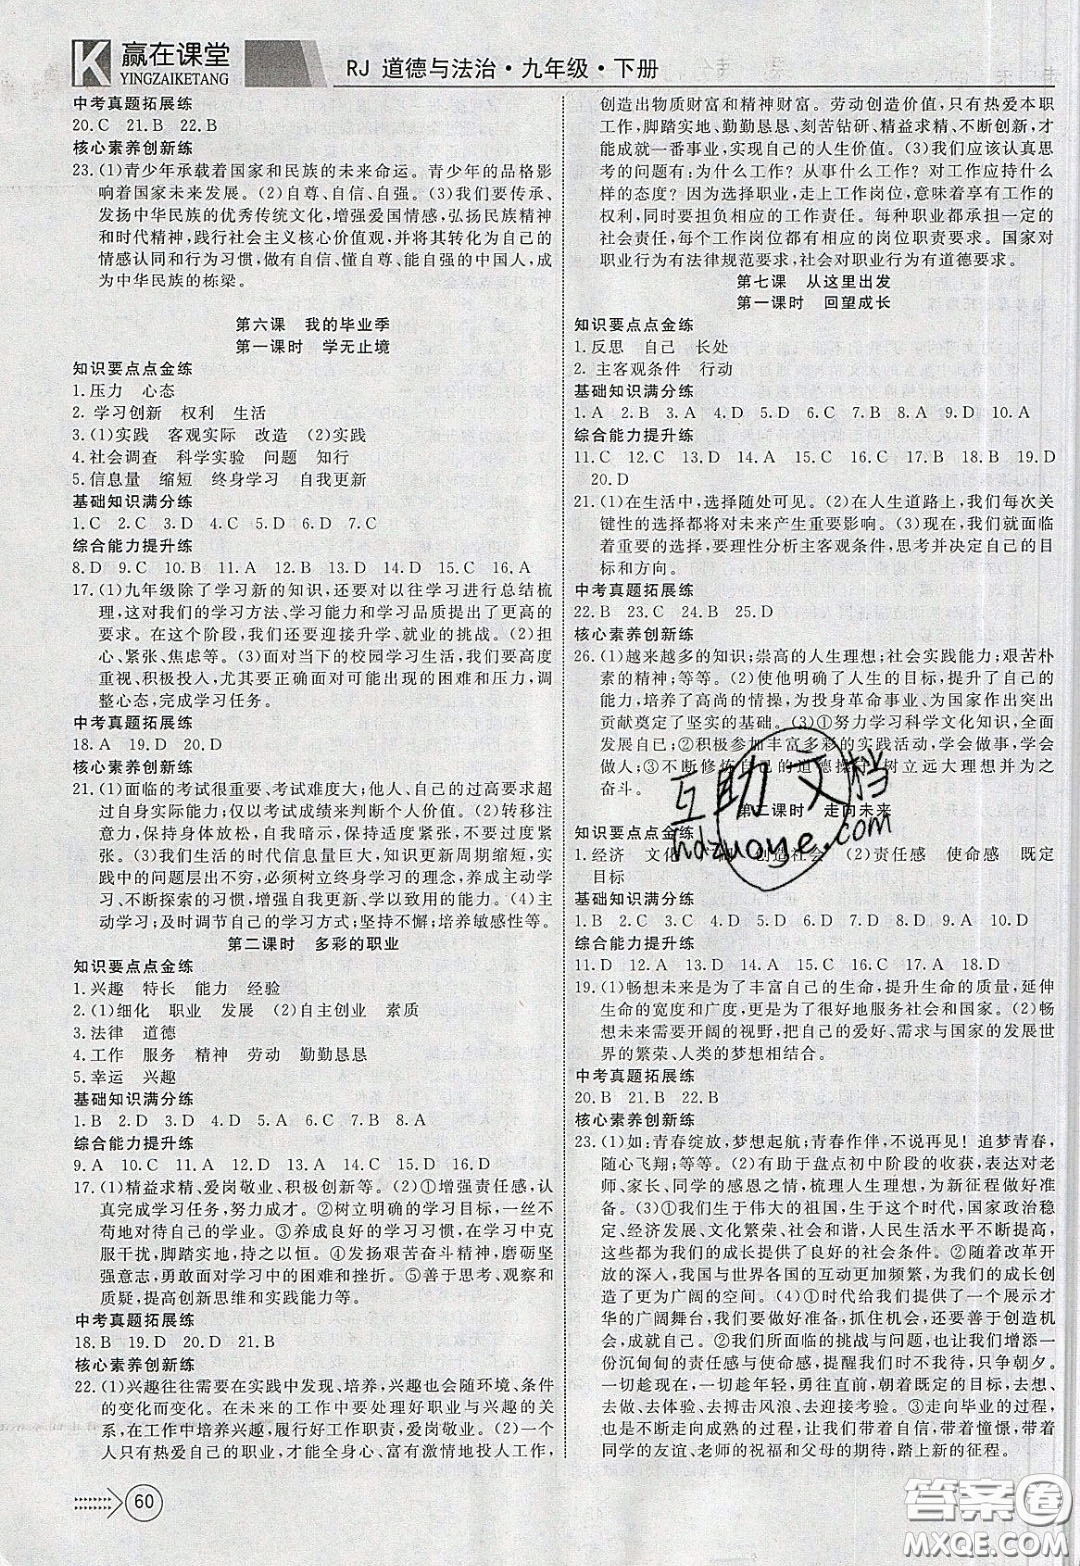 K 赢在课堂
YINGZAIKETANG
RJ 道德与法治·九年级·下册
中考真题拓展练
20.C 21.B 22.B
核心素养创新练
23.(1)青少年承载着国家和民族的未来命运。青少年的品格影
响着国家未来发展。(2)自尊、自信、自强。(3)我们要传承、
发扬中华民族的优秀传统文化,增强爱国情感,弘扬民族精神
和时代精神,践行社会主义核心价值观,并将其转化为自己的
情感认同和行为习惯,做有自信、懂自尊、能自强的中国人,成
为中华民族的栋梁。
第六课 我的毕业季
第一课时 学无止境
知识要点点金练
1.压力 心态
2. 学习创新 权利 生活
3.(1)实践 客观实际 改造 (2)实践
4.社会调查 科学实验 问题 知行
5.信息量 缩短 终身学习 自我更新
基础知识满分练
1.C 2.C 3.D 4.C 5.D 6.D 7.C
综合能力提升练
8.D 9.C 10.B 11.A 12.D 13.D 14.D 15.C 16.A
17.(1)九年级除了学习新的知识,还要对以往学习进行总结梳
理,这对我们的学习方法、学习能力和学习品质提出了更高的
要求。在这个阶段,我们还要迎接升学、就业的挑战。(2)担
心、紧张、焦虑等。(3)面对当下的校园学习生活,我们要高度
重视、积极投入,尤其要正确面对可能出现的困难和压力,调
整心态,完成学习任务。
中考真题拓展练
18.A 19.D 20.D
核心素养创新练
21.(1)面临的考试很重要、考试难度大;他人、自己的过高要求超
过自身实际能力;仅以考试成绩来判断个人价值。(2)转移注
意力,保持身体放松,自我暗示,保持适度紧张,不要过于紧张
等。(3)我们生活的时代信息量巨大,知识更新周期缩短,实践
中的问题层出不穷,我们要树立终身学习的理念,养成主动学
习、不断探索的习惯,增强自我更新、学以致用的能力。(4)主
动学习;及时调节自己的学习方式;坚持不懈、培养敏感性等。
第二课时 多彩的职业
知识要点点金练
1.兴趣 特长 能力 经验
2.(1)细化 职业 发展 (2)自主创业 素质
3.法律 道德
4.工作 服务 精神 劳动 勤勤恳恳
5.幸运 兴趣
基础知识满分练
1.B 2.D 3.D 4.D 5.D 6.D 7.A 8.B
综合能力提升练
9.A 10.C 11.D 12.D 13.D 14.D 15.D 16.D
17.(1)精益求精、爱岗敬业、积极创新等。(2)①增强责任感,认
真完成学习任务,努力成才。②树立明确的学习目标,一丝不
苟地对待自己的学业。③养成良好的学习习惯,在学习中克
服干扰,脚踏实地、持之以恒。④发扬艰苦奋斗精神,磨砺坚
强意志,勇敢面对学习中的困难和挫折。⑤善于思考、观察和
质疑,提高创新思维和实践能力等。
中考真题拓展练
18.B 19.D 20.D 21.B
核心素养创新练
22.(1)兴趣往往需要在实践中发现、培养,兴趣也会随环境、条件
的变化而变化。在未来的工作中要处理好职业与兴趣的关
系,在工作中培养兴趣,履行好工作职责,爱岗敬业。(2)一个
人只有热爱自己的职业,才能全身心、富有激情地投入工作,
60
创造出物质财富和精神财富。劳动创造价值,只有热爱本职
工作,脚踏实地、勤勤恳恳、刻苦钻研、精益求精、不断创新,才
能成就一番事业,实现自己的人生价值。(3)我们应该认真思
考的问题有:为什么工作?从事什么工作?对工作应持什么
样的态度?因为选择职业,走上工作岗位,意味着享有工作的
权利,同时要担负相应的工作责任。每种职业都承担一定的
社会责任,每个工作岗位都有相应的岗位职责要求。国家对
职业行为有法律规范要求,社会对职业行为有道德要求。
第七课 从这里出发
第一课时 回望成长
知识要点点金练
1.反思 自己 长处
2. 主客观条件 行动
基础知识满分练
1.A 2.B 3.A 4.D 5.D 6.C 7.B 8.A 9.D 10.A
综合能力提升练
11.C 12.C 13.D 14.A 15.D 16.B 17.C 18.A 19.D
20.D
21.(1)在生活中,选择随处可见。(2)在人生道路上,我们每次关
键性的选择都将对未来产生重要影响。(3)现在,我们就面临
着重要的选择,要理性分析主客观条件,思考并决定自己的目
标和方向。
中考真题拓展练
22.B 23.C 24.B 25.D
核心素养创新练
26.(1)越来越多的知识;崇高的人生理想;社会实践能力;艰苦朴
素的精神;等等。(2)使他明确了人生的目标,提升了自己的
能力,培养了高尚的情操,为投身革命事业、为国家作出突出
贡献奠定了坚实的基础。(3)①努力学习科学文化知识,全面
发展自己;②积极参加丰富多彩的实践活动,学会做事,学会
做人;③不断修炼自己的道德操守,树立远大理想并为之
奋斗。
第二课时 走向未来
知识要点点金练
1.经济 文化 创造社会 (2)责任感 使命感 既定
目标
基础知识满分练
1.B 2.C 3.D 4.C 5.D 6.D 7.D 8.D 9.A 10.D
综合能力提升练
11.D 12.A 13.C 14.D 15.C 16.D 17.A 18.D
19.(1)畅想未来是为了丰富自己的生命,提升生命的质量,延伸
生命的宽度和广度,更是为了更好地服务社会和国家。(2)畅
想未来需要开阔的视野,把自己的爱好、需求与国家的发展世
界的繁荣、人类的梦想相结合。
中考真题拓展练
20.B 21.B 22.B
核心素养创新练
23.(1)如:青春绽放,梦想起航;青春作伴,不说再见!追梦青春,
随心飞翔;等等。(2)有助于盘点初中阶段的收获,表达对老
师、家长、同学的感恩之情,梳理人生理想,为新征程做好准
备。(3)①我们生于伟大的祖国,生在这个时代,国家政治稳
定、经济发展、文化繁荣、社会和谐,人民生活水平不断提高,
这些都为我们的成长提供了良好的社会条件。②随着改革开
放的深入,我国与世界各国的互动更加频繁,为我们创造了更
为广阔的发展空间。(4)①时代给我们提供了机会和展示才
华的广阔舞台,我们要做好各种准备,抓住机遇,善于创造机
会,成就自己。②我们所面临的挑战与问题,也让我们增添一
份沉甸甸的责任感与使命感,提醒我们时不我待、只争朝夕。
一切趁现在,一切趁年轻。我们要走出校园,去创造、去想
去做、去体验、去搏击风浪、去迎接考验。③走向毕业的过程,
也是不断走向成熟的过程,我们要带着自信、带着憧憬,带着
同学的友谊、老师的祝福和父母的期待,踏上新的征程。
互助文档
hdzuoye.com
答案圈
MXQE.COM